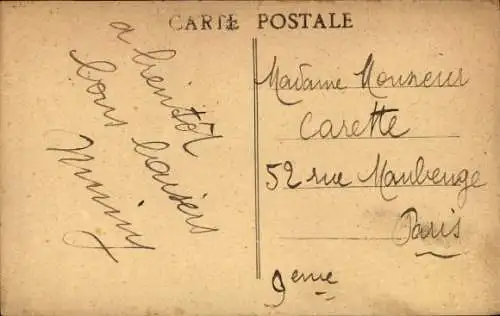 CARTE POSTALE
a bientôt
bons baisers
Mimiy
Madame Monsieur
Carette
52 rue Maubeuge
Paris
9eme